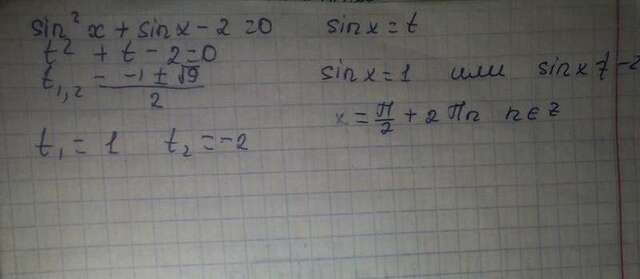 sin²x + sinx - 2 = 0
sinx = t
t² + t - 2 = 0
t₁,₂ = (-1 ± √9)/2
sinx = 1 или sinx ≠ -2
x = π/2 + 2πn n∈z
t₁ = 1 t₂ = -2